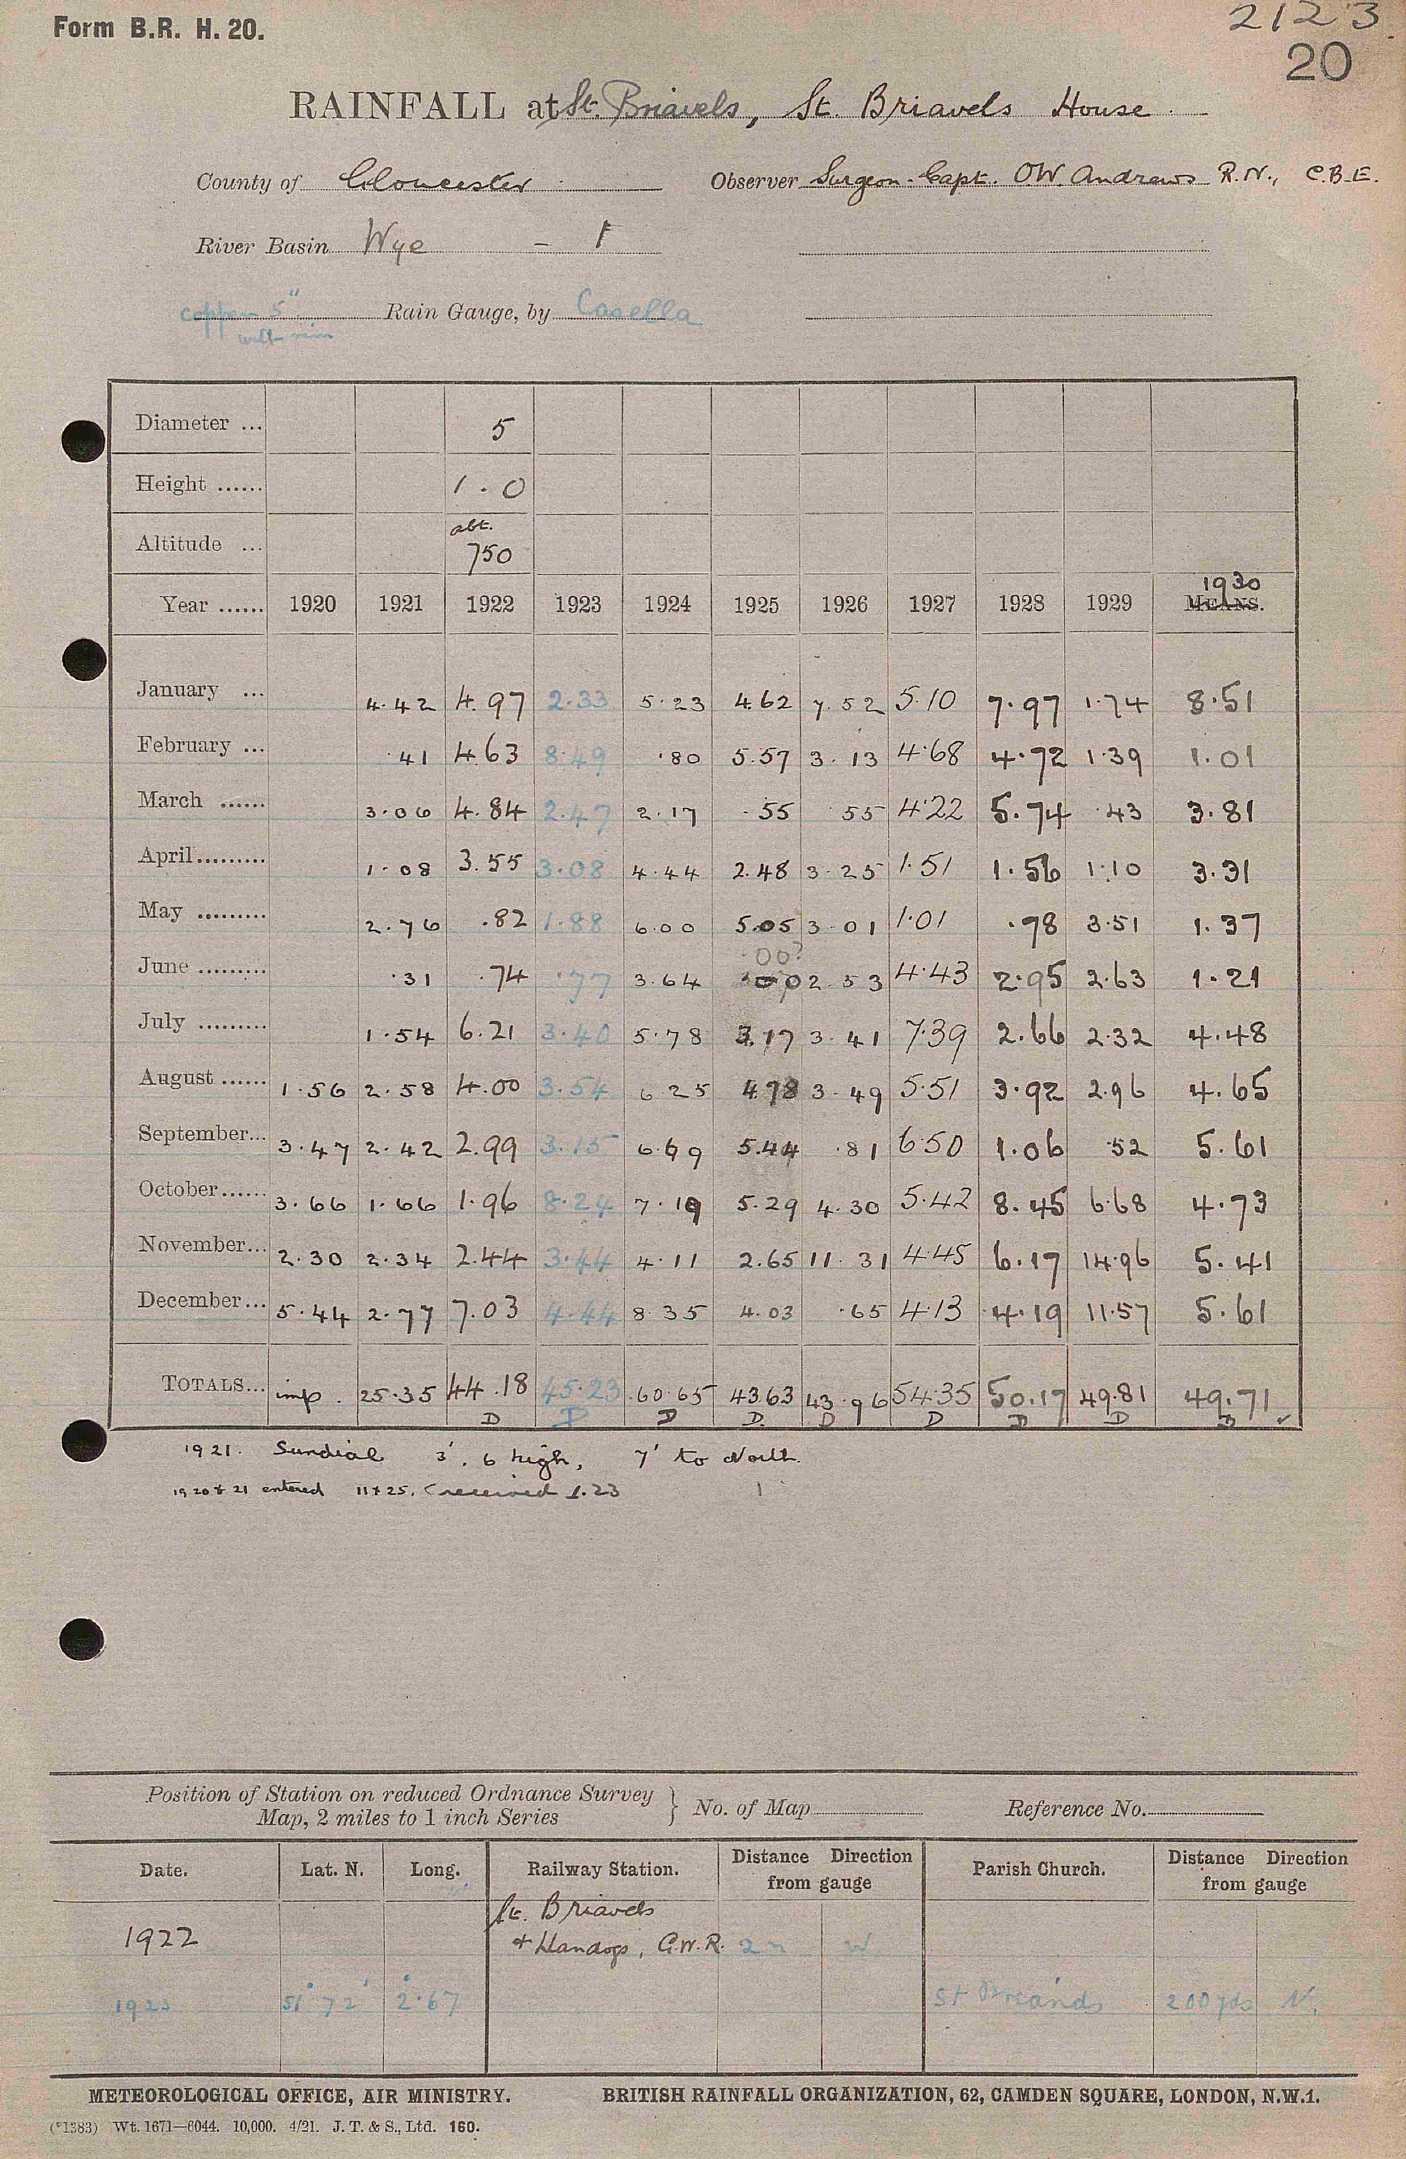 Form B.R. H. 20.
2123
20
RAINFALL at St. Briavels, St. Briavels House
County of Gloucester Observer Surgeon-Capt. O.W. Andrews R.N., C.B.E.
River Basin Wye - 1
copper 5" Rain Gauge, by Casella
with rim
Diameter ... 5
Height ...... 1.0
abt.
Altitude ... 750
1930
Year ...... 1920 1921 1922 1923 1924 1925 1926 1927 1928 1929 MEANS.
January ... 4.42 4.97 2.33 5.23 4.62 7.52 5.10 7.97 1.74 8.51
February ... .41 4.63 8.49 .80 5.57 3.13 4.68 4.72 1.39 1.01
March ...... 3.06 4.84 2.47 2.17 .55 .55 4.22 5.74 .43 3.81
April......... 1.08 3.55 3.08 4.44 2.48 3.25 1.51 1.56 1.10 3.31
May ......... 2.76 .82 1.88 6.00 5.05 3.01 1.01 .78 3.51 1.37
.00?
June ......... .31 .74 .77 3.64 .00 2.53 4.43 2.95 2.63 1.21
July ......... 1.54 6.21 3.40 5.78 3.17 3.41 7.39 2.66 2.32 4.48
August ...... 1.56 2.58 4.00 3.54 6.25 4.78 3.49 5.51 3.92 2.96 4.65
September... 3.47 2.42 2.99 3.15 6.69 5.44 .81 6.50 1.06 .52 5.61
October...... 3.66 1.66 1.96 8.24 7.19 5.29 4.30 5.42 8.45 6.68 4.73
November... 2.30 2.34 2.44 3.44 4.11 2.65 11.31 4.45 6.17 14.96 5.41
December... 5.44 2.77 7.03 4.44 8.35 4.03 .65 4.13 4.19 11.57 5.61
TOTALS... imp. 25.35 44.18 45.23 60.65 43.63 43.96 54.35 50.17 49.81 49.71
D D D D D D D D B ✓
1921. Sundial 3'.6 high, 7' to North.
1920 & 21 entered 11+25. (received 1.23
Position of Station on reduced Ordnance Survey
Map, 2 miles to 1 inch Series } No. of Map Reference No.
Date. Lat. N. Long. Railway Station. Distance Direction from gauge Parish Church. Distance Direction from gauge
1922 St. Briavels
& Llandogo, G.W.R. 2 m W
1923 51°72' 2°67 St Briavels 200 yds N.
METEOROLOGICAL OFFICE, AIR MINISTRY. BRITISH RAINFALL ORGANIZATION, 62, CAMDEN SQUARE, LONDON, N.W.1.
(*1383) Wt. 1671—6044. 10,000. 4/21. J. T. & S., Ltd. 160.